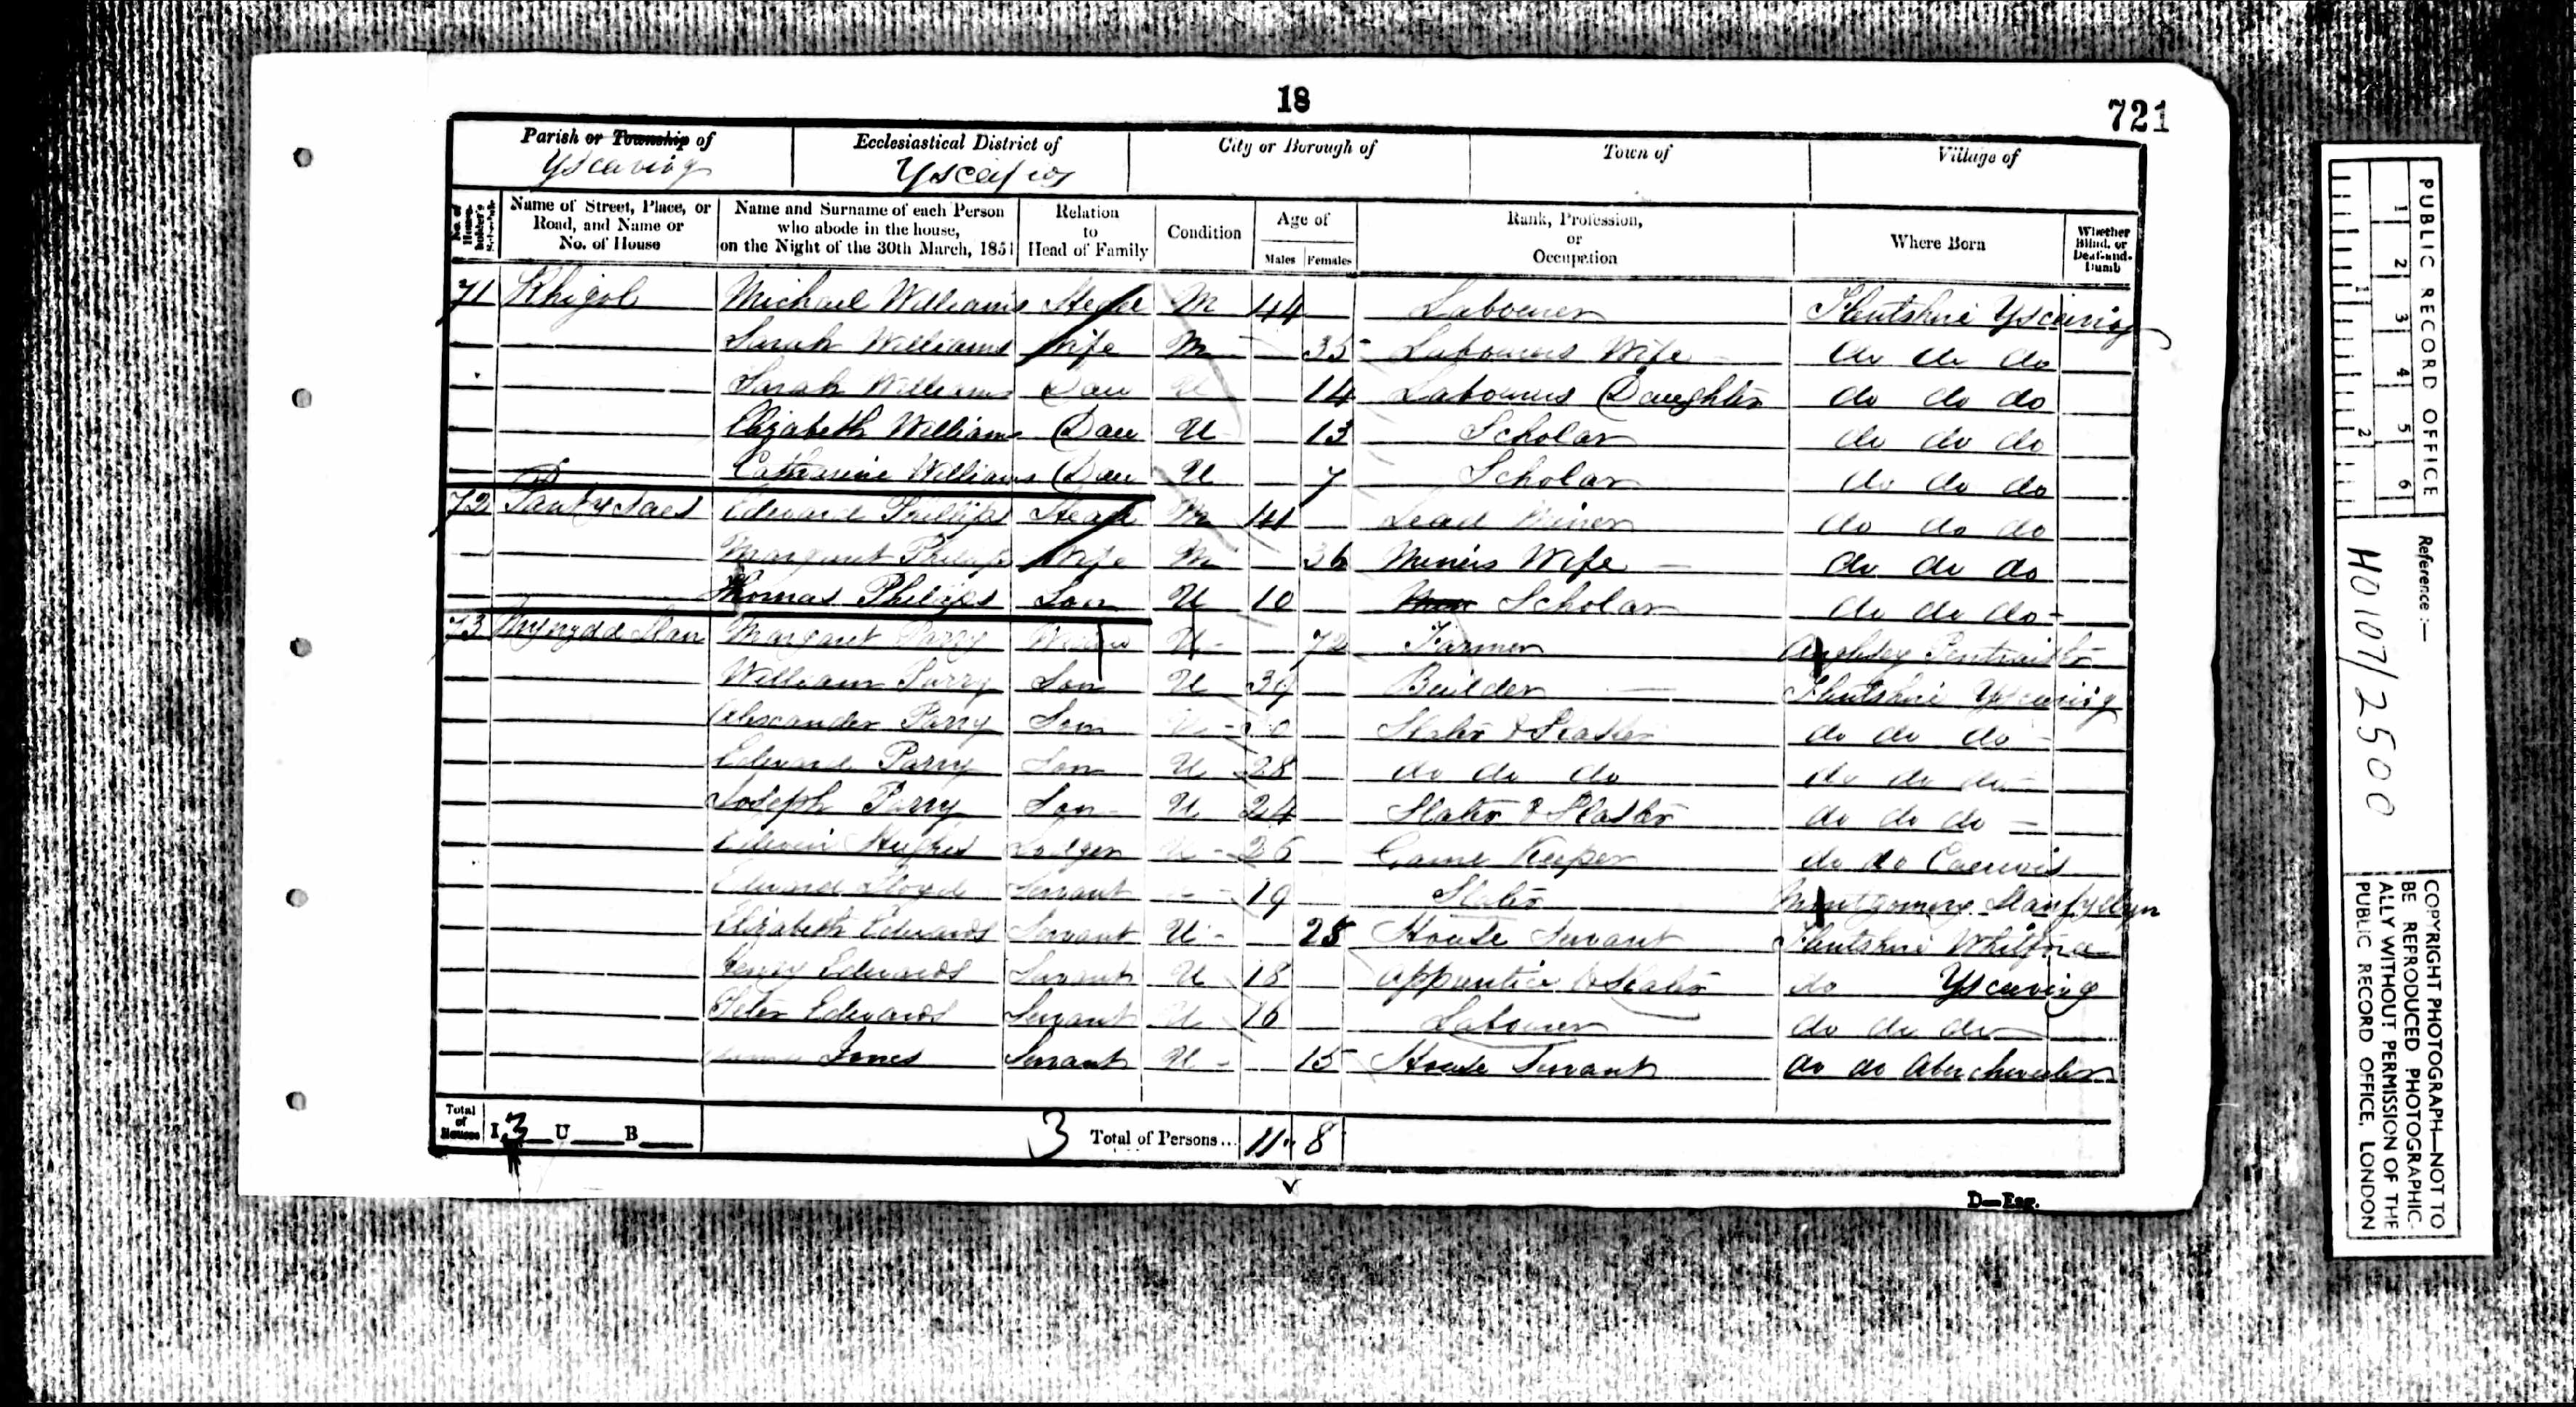 18
721
Parish or Township of
Ysceiviog
Ecclesiastical District of
Ysceifiog
City or Borough of
Town of
Village of
No. of Householder's Schedule
Name of Street, Place, or Road, and Name or No. of House
Name and Surname of each Person who abode in the house, on the Night of the 30th March, 1851
Relation to Head of Family
Condition
Age of
Males Females
Rank, Profession, or Occupation
Where Born
Whether Blind, or Deaf-and-Dumb
71 Rhigol Michael Williams Head M 44 Labourer Flintshire Ysceiviog
Sarah Williams Wife M 35 Labourers Wife do do do
Sarah Williams Dau U 14 Labourers Daughter do do do
Elizabeth Williams Dau U 13 Scholar do do do
Catherine Williams Dau U 7 Scholar do do do
72 Edward Phillips Head M 41 Lead Miner do do do
Margaret Philips Wife M 36 Miners Wife do do do
Thomas Philips Son U 10 Scholar do do do
73 Mynydd Llan Margaret Parry Widow U 72 Farmer
William Parry Son U 39 Builder Flintshire Ysceiviog
Alexander Parry Son U 30 Slater & Plaster do do do
Edward Parry Son U 28 do do do do do do
Joseph Parry Son U 24 Slater & Plaster do do do
Edwin Hughes Lodger U 26 Game Keeper do do Caerwis
Edward Lloyd Servant 19 Slater Montgomery Llanfyllyn
Elizabeth Edwards Servant U 28 House Servant Flintshire Whitford
Henry Edwards Servant U 18 Apprentice to Slater do Ysceiviog
Peter Edwards Servant U 16 Labourer do do do
Jones Servant U 15 House Servant do do
Total of Houses I 3 U B
3 Total of Persons... 11 8
D—Eng.
PUBLIC RECORD OFFICE
1 2 3 4 5 6
1 2
Reference :—
HO107/2500
COPYRIGHT PHOTOGRAPH—NOT TO
BE REPRODUCED PHOTOGRAPHIC-
ALLY WITHOUT PERMISSION OF THE
PUBLIC RECORD OFFICE, LONDON